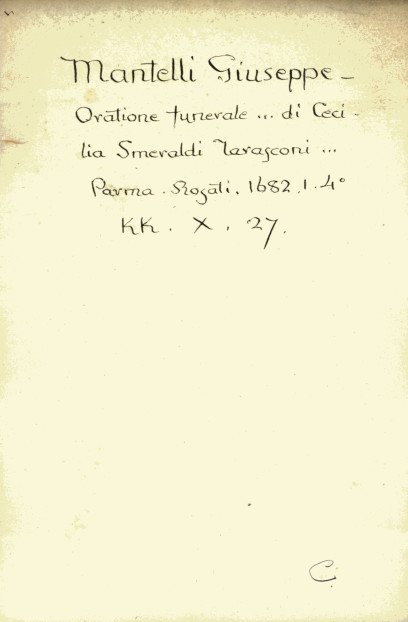 Mantelli Giuseppe -
Oratione funerale ... di Ceci -
lia Smeraldi Tarasconi ...
Parma . Rosati . 1682 . 1 . 4°
KK . X . 27 .
C.